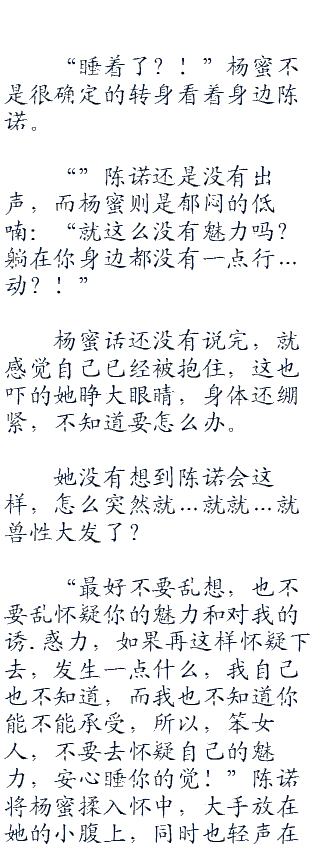 “睡着了？！”杨蜜不
是很确定的转身看着身边陈
诺。
“”陈诺还是没有出
声，而杨蜜则是郁闷的低
喃：“就这么没有魅力吗？
躺在你身边都没有一点行…
动？！”
杨蜜话还没有说完，就
感觉自己已经被抱住，这也
吓的她睁大眼睛，身体还绷
紧，不知道要怎么办。
她没有想到陈诺会这
样，怎么突然就…就就…就
兽性大发了？
“最好不要乱想，也不
要乱怀疑你的魅力和对我的
诱.惑力，如果再这样怀疑下
去，发生一点什么，我自己
也不知道，而我也不知道你
能不能承受，所以，笨女
人，不要去怀疑自己的魅
力，安心睡你的觉！”陈诺
将杨蜜揉入怀中，大手放在
她的小腹上，同时也轻声在